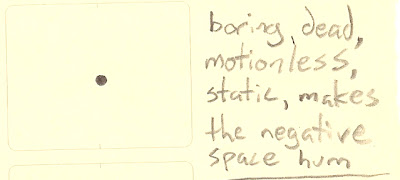 boring, dead,
motionless,
static, makes
the negative
space hum